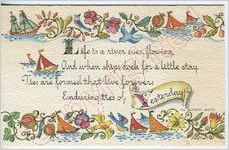 Life is a river ever flowing,
And when ships dock for a little stay
Ties are formed that live forever:
Enduring ties of Yesterday